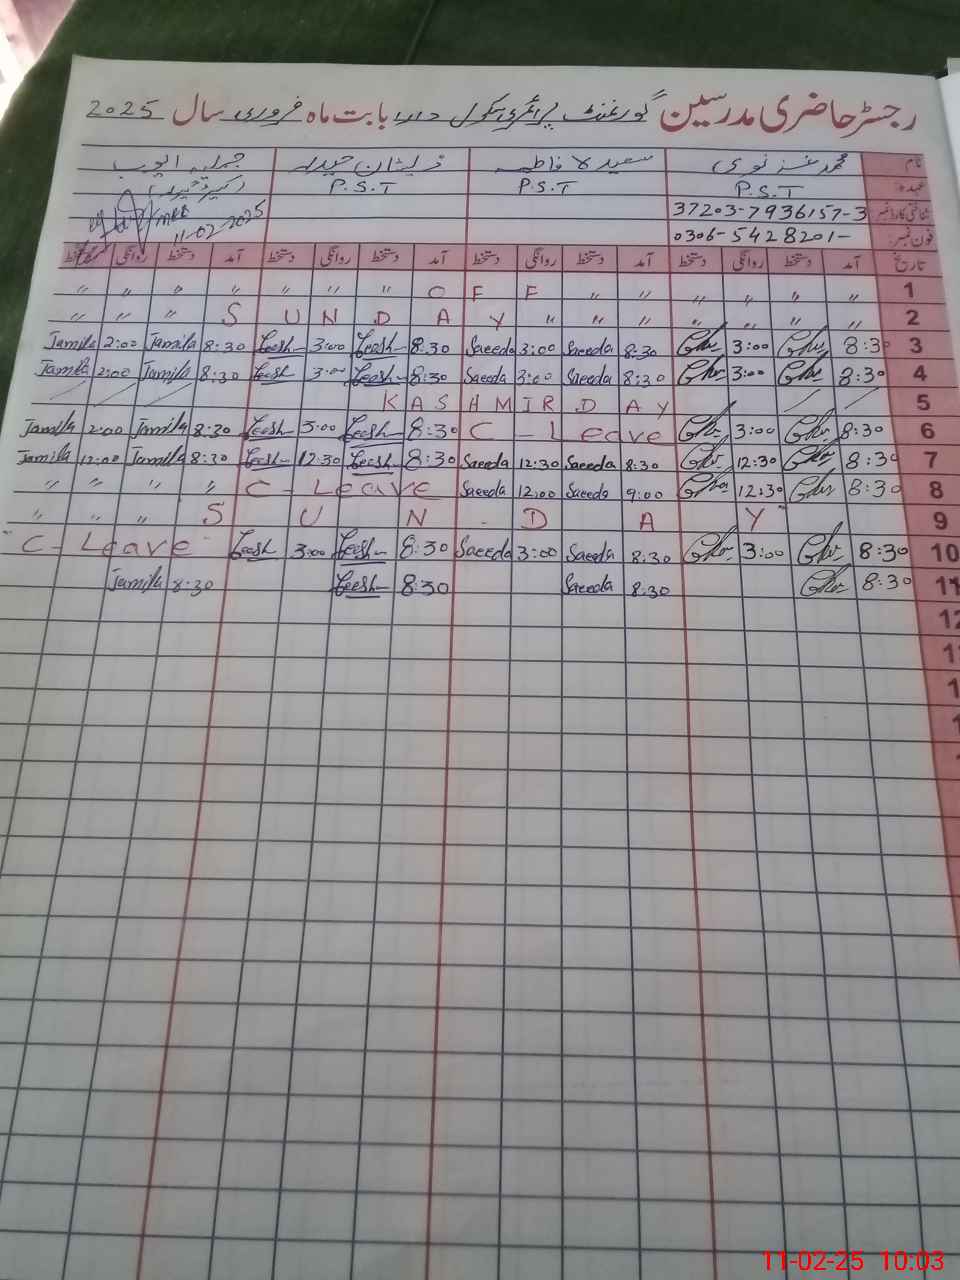 رجسٹر حاضری مدرسین گورنمنٹ پرائمری سکول بابت ماہ فروری سال 2025
نام محمد نوری سعیدہ فاطمہ ذیشان حیدر جمیلہ ایوب
عہدہ: P.S.T P.S.T P.S.T
شناختی کارڈ نمبر 37203-7936157-3
فون نمبر: 0306-5428201- 11-02-2025
تاریخ آمد دستخط روانگی دستخط آمد دستخط روانگی دستخط آمد دستخط روانگی دستخط آمد دستخط روانگی دستخط
" " " " " " " O F F " " " " " " 1
" " " S U N D A Y " " " " " " " 2
Jamila 2:00 Jamila 8:30 Leesh 3:00 Leesh 8:30 Saeeda 3:00 Saeeda 8:30 3:00 8:30 3
Jamila 2:00 Jamila 8:30 Leesh 3:00 Leesh 8:30 Saeeda 3:00 Saeeda 8:30 3:00 8:30 4
KASHMIR DAY 5
Jamila 2:00 Jamila 8:30 Leesh 3:00 Leesh 8:30 C - Leave 3:00 8:30 6
Jamila 12:00 Jamila 8:30 Leesh 12:30 Leesh 8:30 Saeeda 12:30 Saeeda 8:30 12:30 8:30 7
" " " " C - Leave Saeeda 12:00 Saeeda 9:00 12:30 8:30 8
" " " S U N D A Y 9
C - Leave Leesh 3:00 Leesh 8:30 Saeeda 3:00 Saeeda 8:30 3:00 8:30 10
Jamila 8:30 Leesh 8:30 Saeeda 8:30 8:30 11
12
11-02-25 10:03